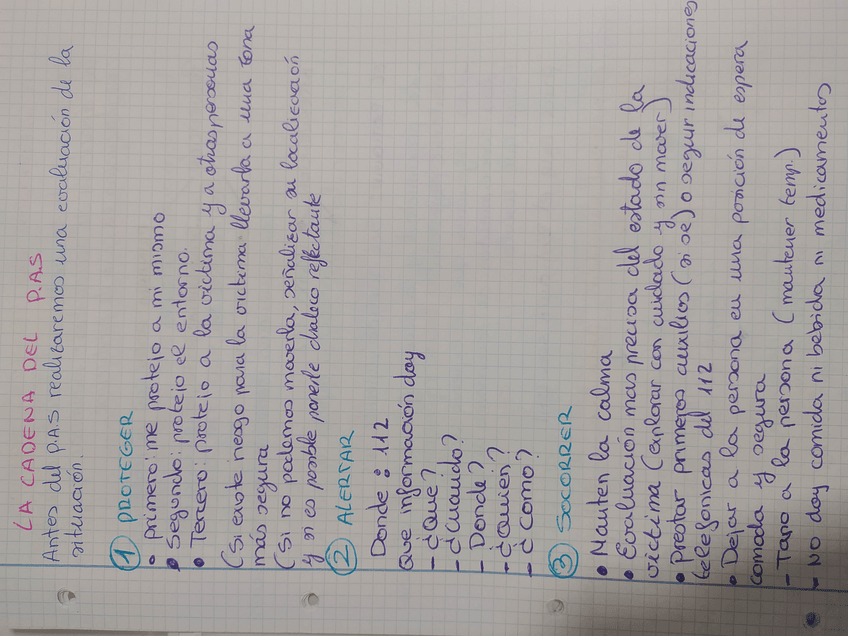 LA CADENA DEL P.A.S
Antes del PAS realizaremos una evaluación de la
situación.
1 PROTEGER
• primero: me protejo a mi mismo
• Segundo: protejo el entorno.
• Tercero: protejo a la victima y a otras personas
(Si existe riesgo para la victima llevarla a una zona
más segura
(Si no podemos moverla, señalizar su localización
y si es posible ponerle chaleco reflectante
2 ALERTAR
Donde : 112
Que información doy
- ¿Qué?
- ¿Cuando?
- Donde?
- ¿Quien?
- ¿Como?
3 SOCORRER
• Manten la calma
• Evaluación mas precisa del estado de la
victima (explorar con cuidado y sin mover)
• Prestar primeros auxilios (si se) o seguir indicaciones
telefonicas del 112
• Dejar a la persona en una posición de espera
comoda y segura
- Tapo a la persona (mantener temp.)
- No doy comida ni bebida ni medicamentos